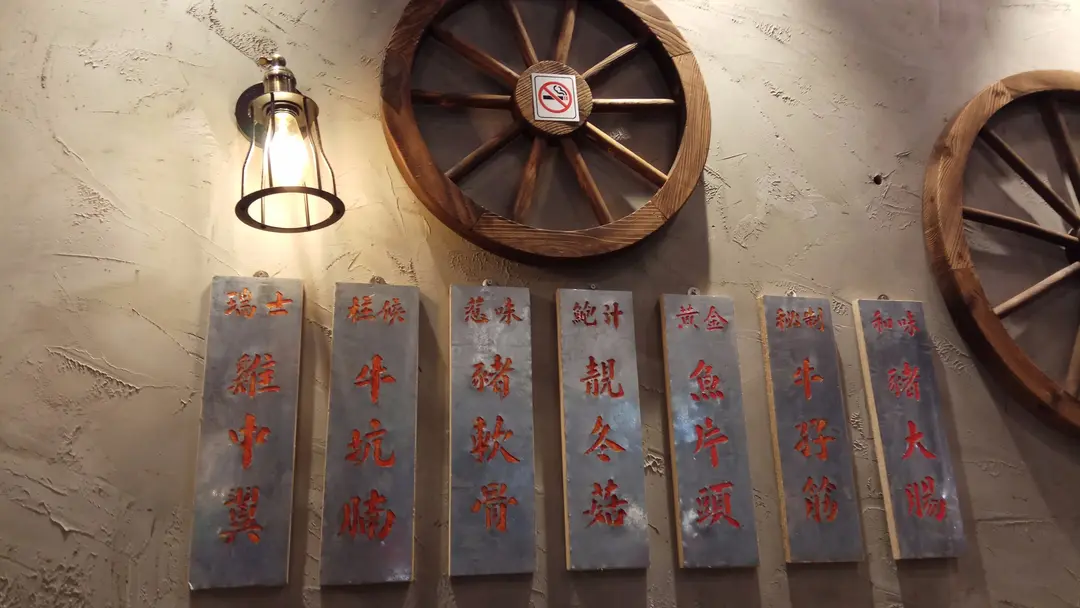 瑞士
雞中翼
柱侯
牛坑腩
惹味
豬軟骨
鮑汁
靚冬菇
黃金
魚片頭
秘制
牛孖筋
和味
豬大腸